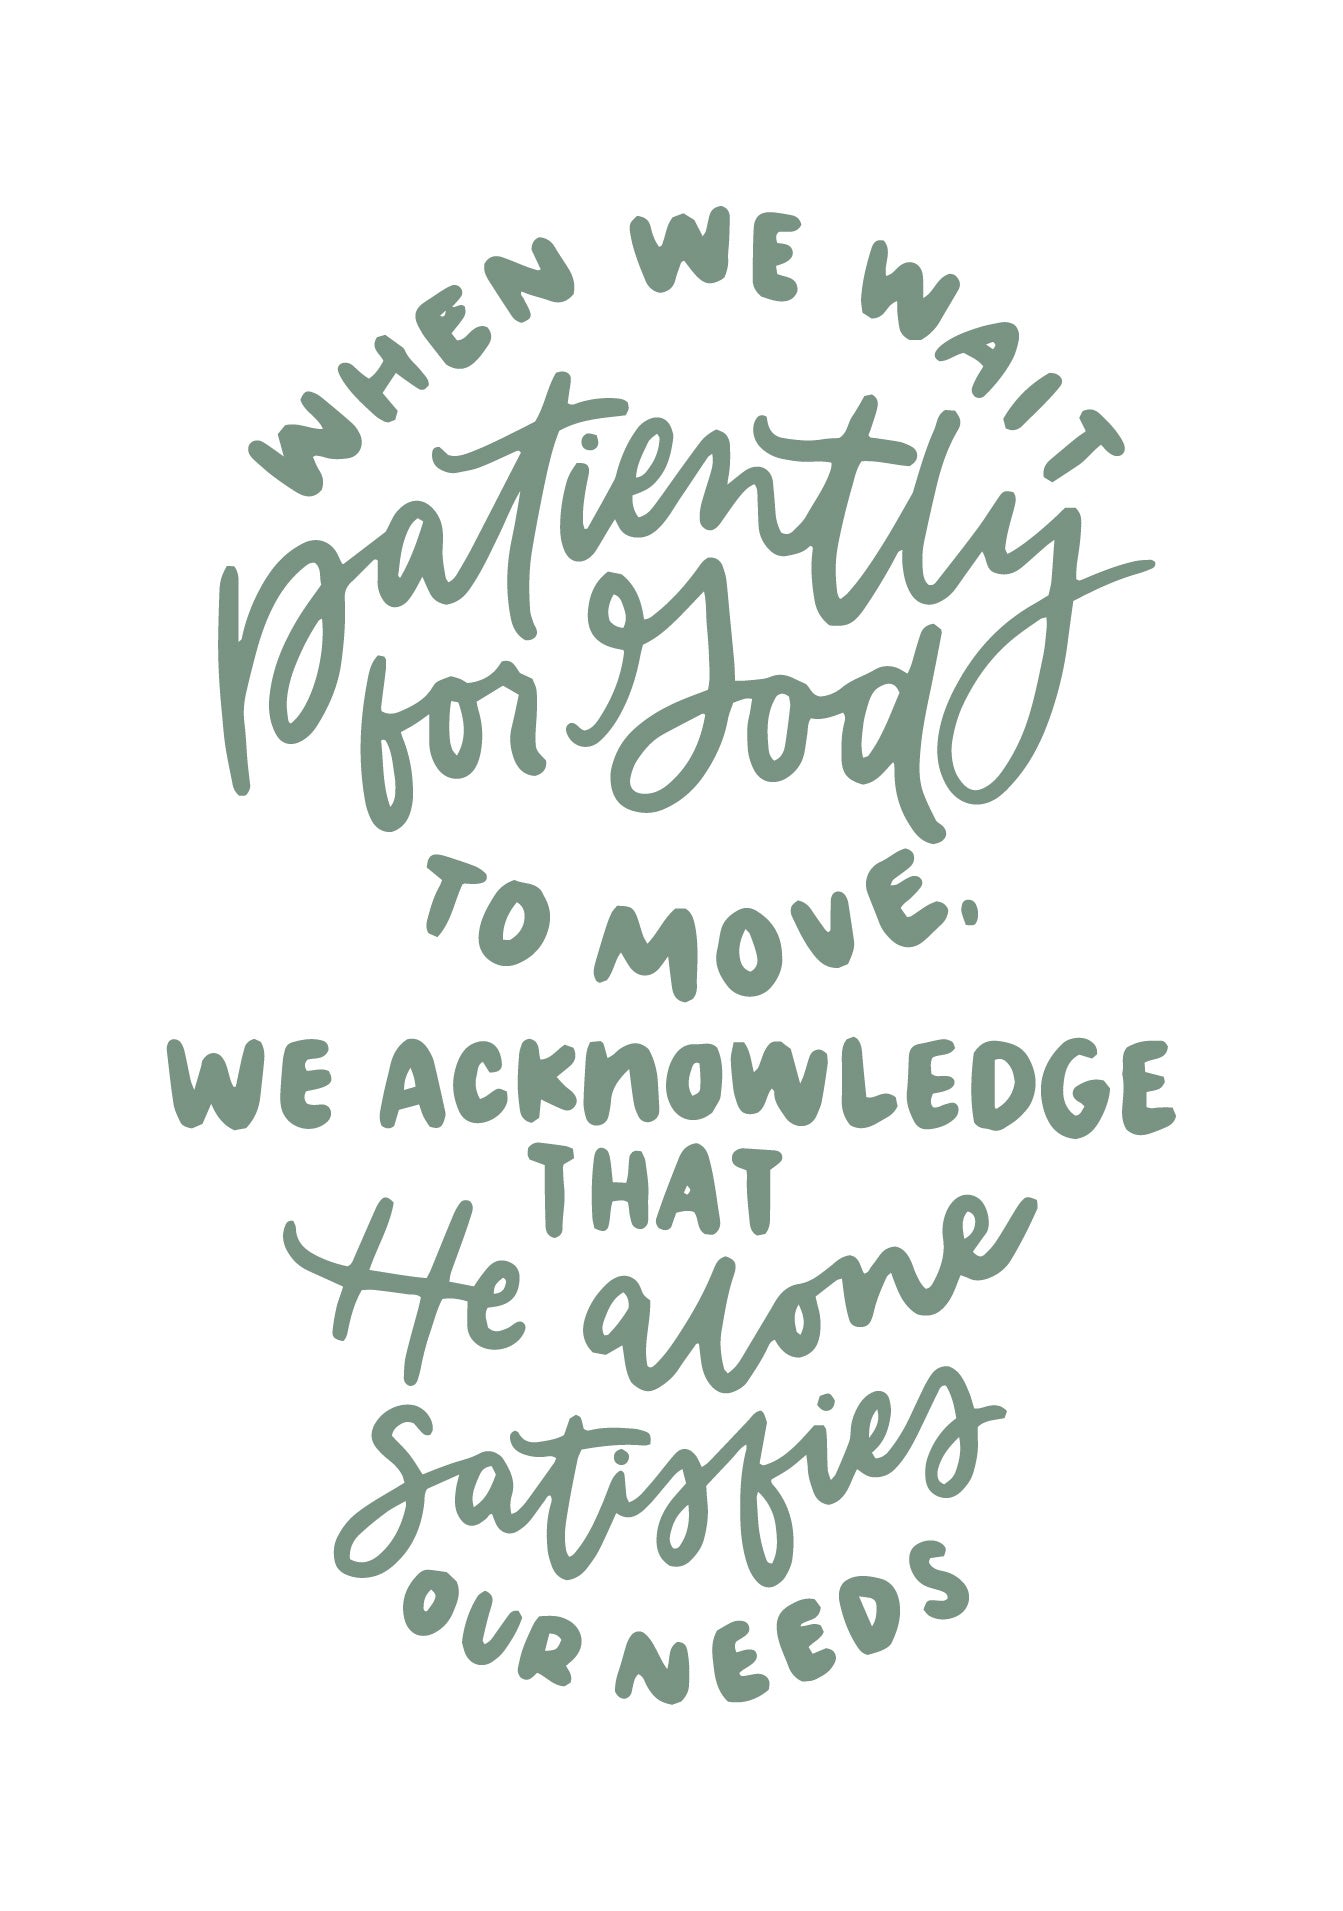 WHEN WE WAIT
patiently
for God
TO MOVE,
WE ACKNOWLEDGE
THAT
He alone
satisfies
OUR NEEDS